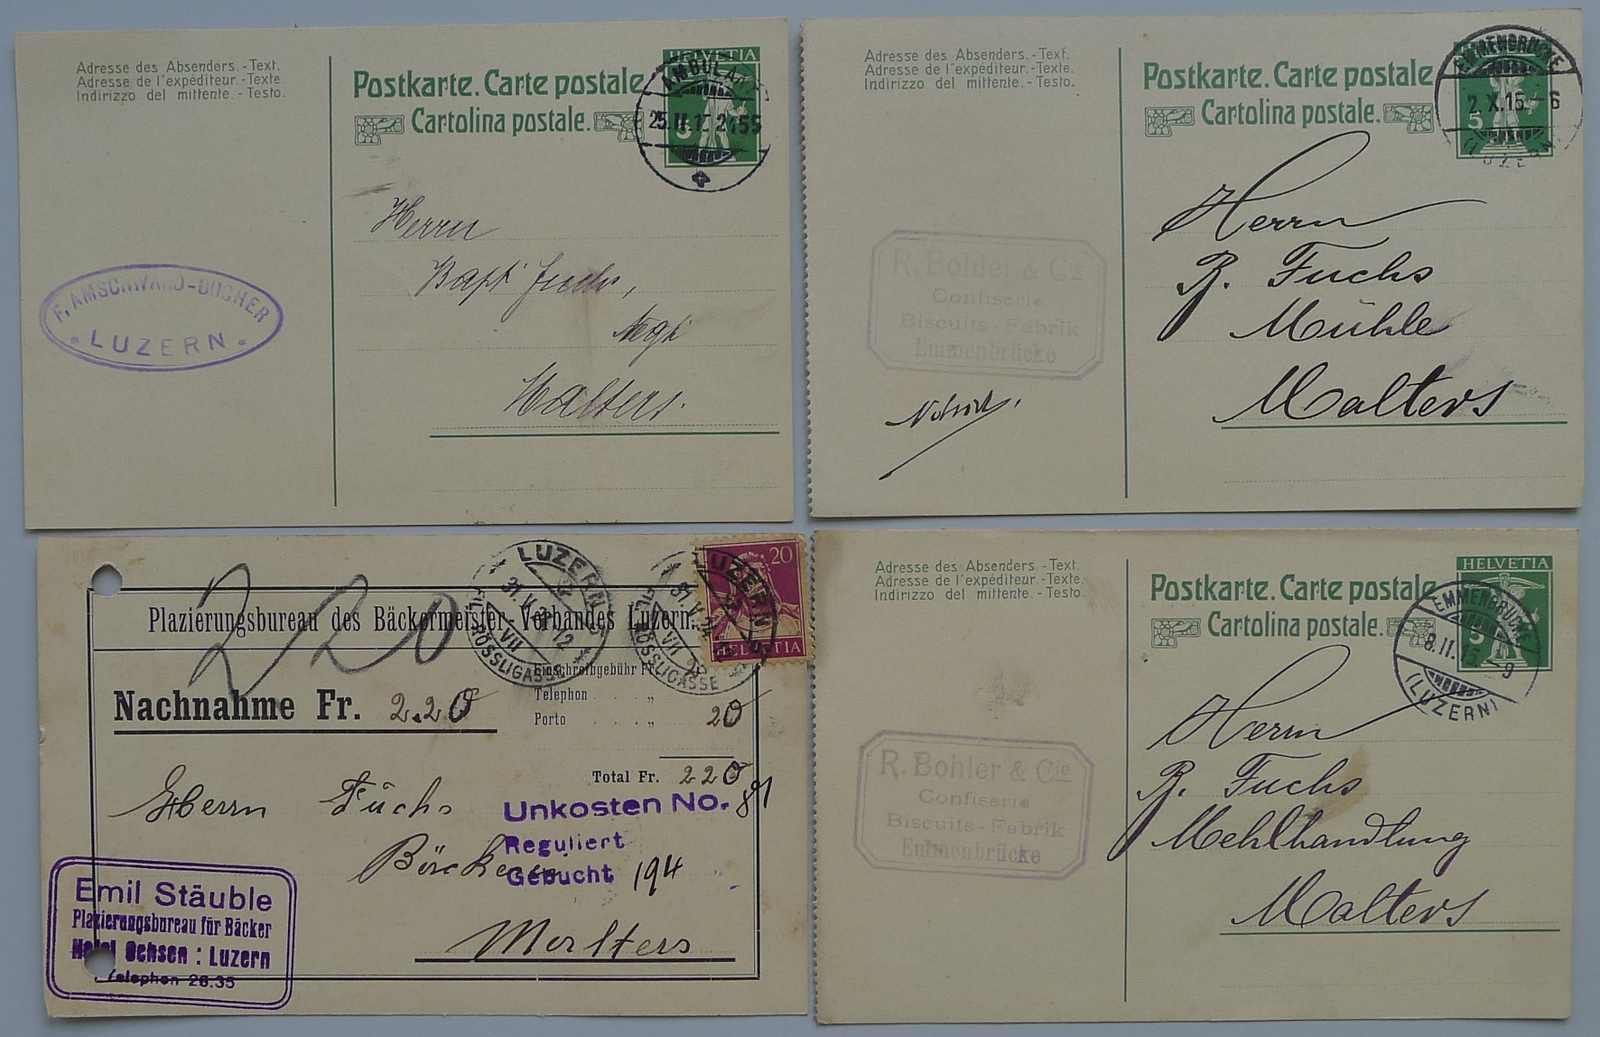 Adresse des Absenders. - Text.
Adresse de l'expéditeur. - Texte
Indirizzo del mittente. - Testo.
Postkarte. Carte postale
Cartolina postale.
HELVETIA
5
AMBULANT
25.II.15 2155
4
F. AMSCHWAND-BUCHER
LUZERN
Herrn
Bapt Fuchs,
Malters.
Adresse des Absenders. - Text.
Adresse de l'expéditeur. - Texte.
Indirizzo del mittente. - Testo.
Postkarte. Carte postale
Cartolina postale.
5
EMMENBRÜCKE
2.X.15. - 6
(LUZERN)
R. Bohler & Cie
Confiserie
Biscuits - Fabrik
Emmenbrücke
Herrn
B. Fuchs
Mühle
Malters
220
Plazierungsbureau des Bäckermeister-Verbandes Luzern.
LUZERN
31.V. 12
VII
FIL. RÖSSLIGASSE
LUZERN
31.V.
VII
FIL. RÖSSLIGASSE
20
HELVETIA
Nachnahme Fr. 2.20
Einschreibgebühr Fr.
Telephon . . . . „
Porto . . . . „ 20
Total Fr. 220
Herrn Fuchs
Bäckerei
Malters
Unkosten No. 81
Reguliert
Gebucht 194
Emil Stäuble
Plazierungsbureau für Bäcker
Hotel Ochsen : Luzern
Telephon 26.35
Adresse des Absenders. - Text.
Adresse de l'expéditeur. - Texte.
Indirizzo del mittente. - Testo
Postkarte. Carte postale
Cartolina postale.
HELVETIA
5
EMMENBRÜCKE
8.II.15. - 9
(LUZERN)
R. Bohler & Cie
Confiserie
Biscuits - Fabrik
Emmenbrücke
Herrn
B. Fuchs
Mehlhandlung
Malters